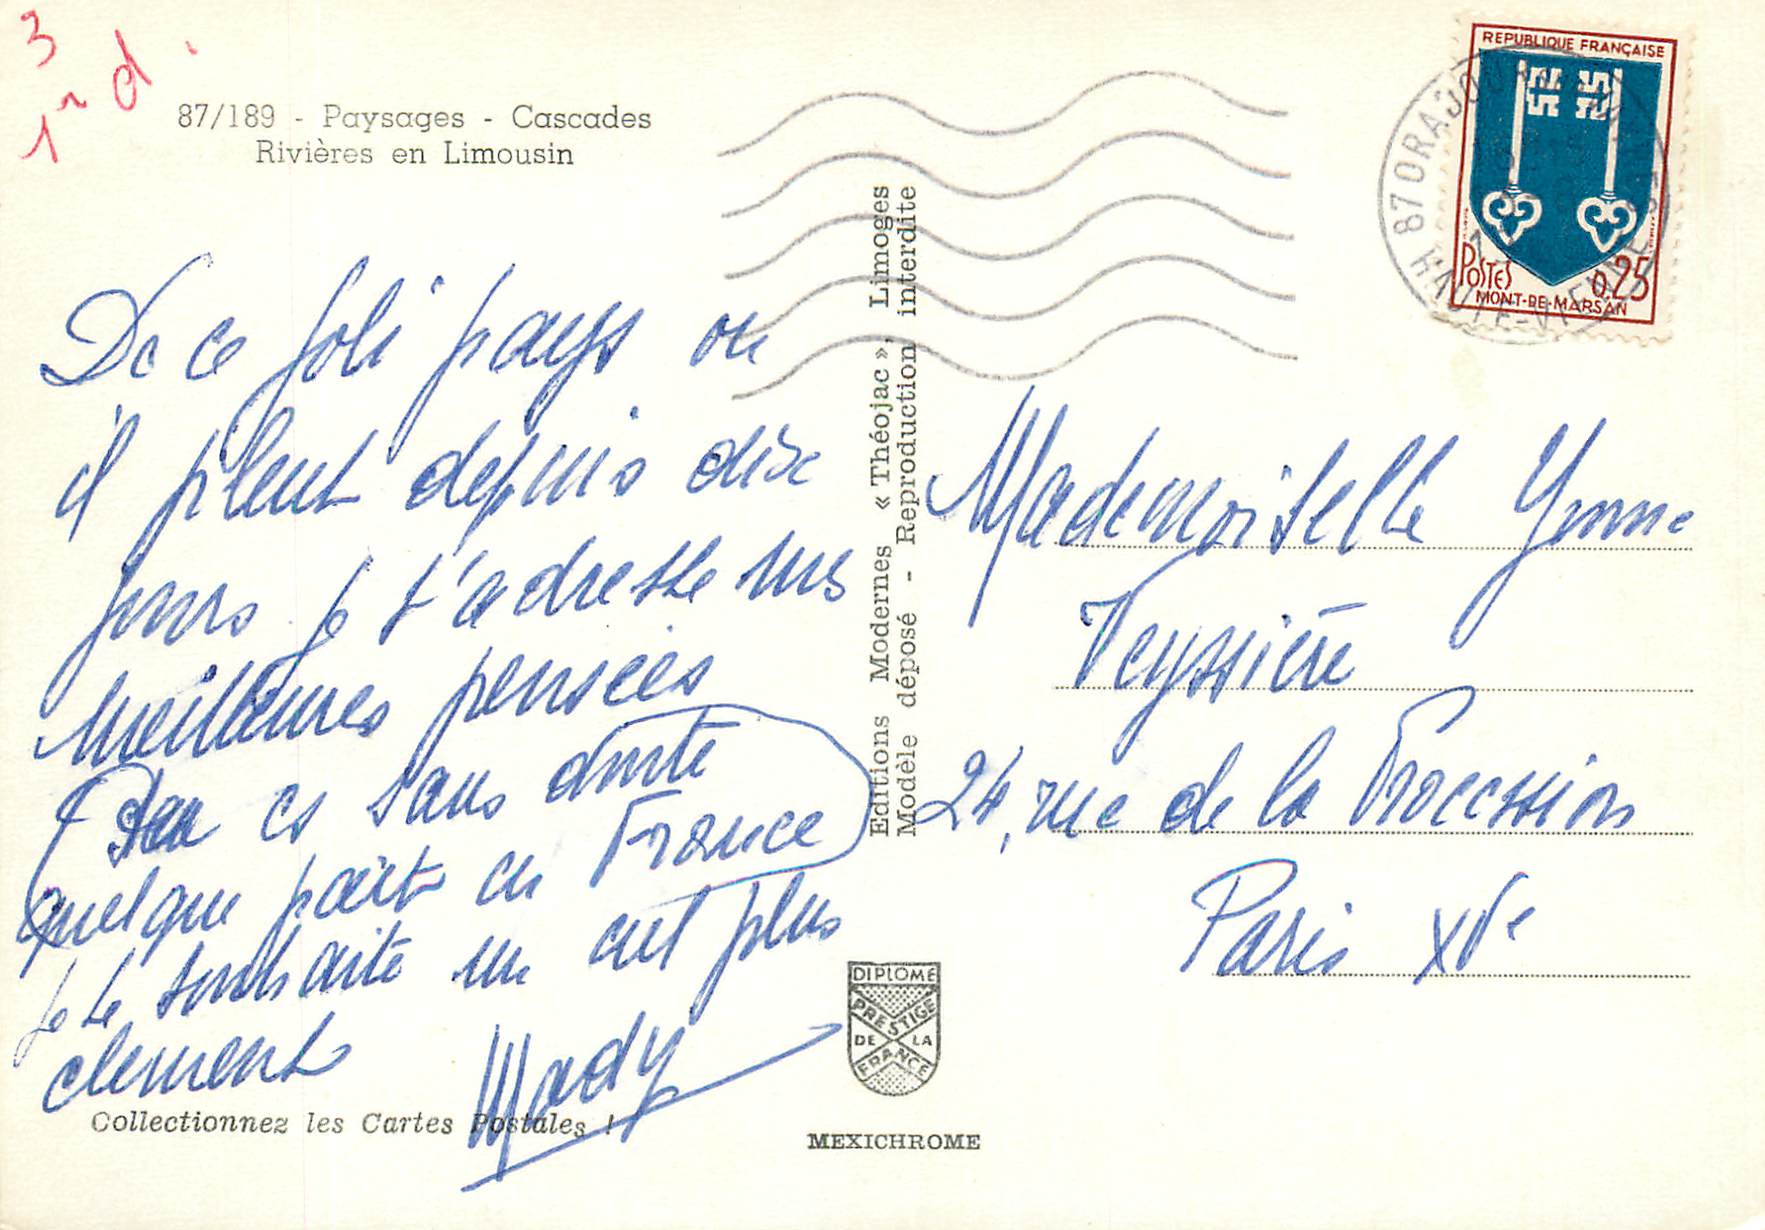 3
1 d.
87/189 - Paysages - Cascades
Rivières en Limousin
De ce joli pays ou
il pleut depuis dix
jours je t'adresse mes
meilleures pensées
es sans doute
quelque part en France
je te souhaite un ciel plus
clement
Mady
Collectionnez les Cartes Postales !
Editions Modernes « Théojac », Limoges
Modèle déposé - Reproduction interdite
DIPLOME
PRESTIGE
DE LA
FRANCE
MEXICHROME
REPUBLIQUE FRANÇAISE
POSTES
0,25
MONT-DE-MARSAN
87 ORADOUR
HAUTE-VIENNE
Mademoiselle Yvonne
Veyssière
24, rue de la Procession
Paris XVe